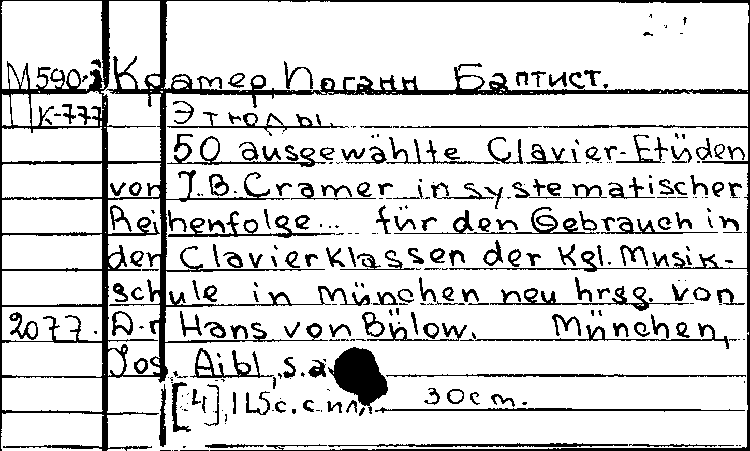 М590. Крамер, Иоганн Баптист.
К-777 Этюды.
50 ausgewählte Clavier-Etüden
von J.B.Cramer in systematischer
Reihenfolge... für den Gebrauch in
den Clavierklassen der Kgl. Musik-
schule in München neu hrsg. von
2077. D-r Hans von Bülow. München,
Jos. Aibl, s.a
[4], 115с. с илл. 30cm.